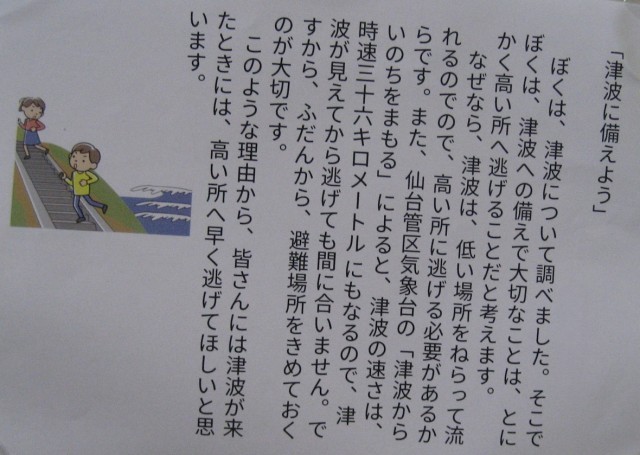 「津波に備えよう」
ぼくは、津波について調べました。そこで
ぼくは、津波への備えで大切なことは、とに
かく高い所へ逃げることだと考えます。
なぜなら、津波は、低い場所をねらって流
れるのでので、高い所に逃げる必要があるか
らです。また、仙台管区気象台の「津波から
いのちをまもる」によると、津波の速さは、
時速三十六キロメートルにもなるので、津
波が見えてから逃げても間に合いません。で
すから、ふだんから、避難場所をきめておく
のが大切です。
このような理由から、皆さんには津波が来
たときには、高い所へ早く逃げてほしいと思
います。